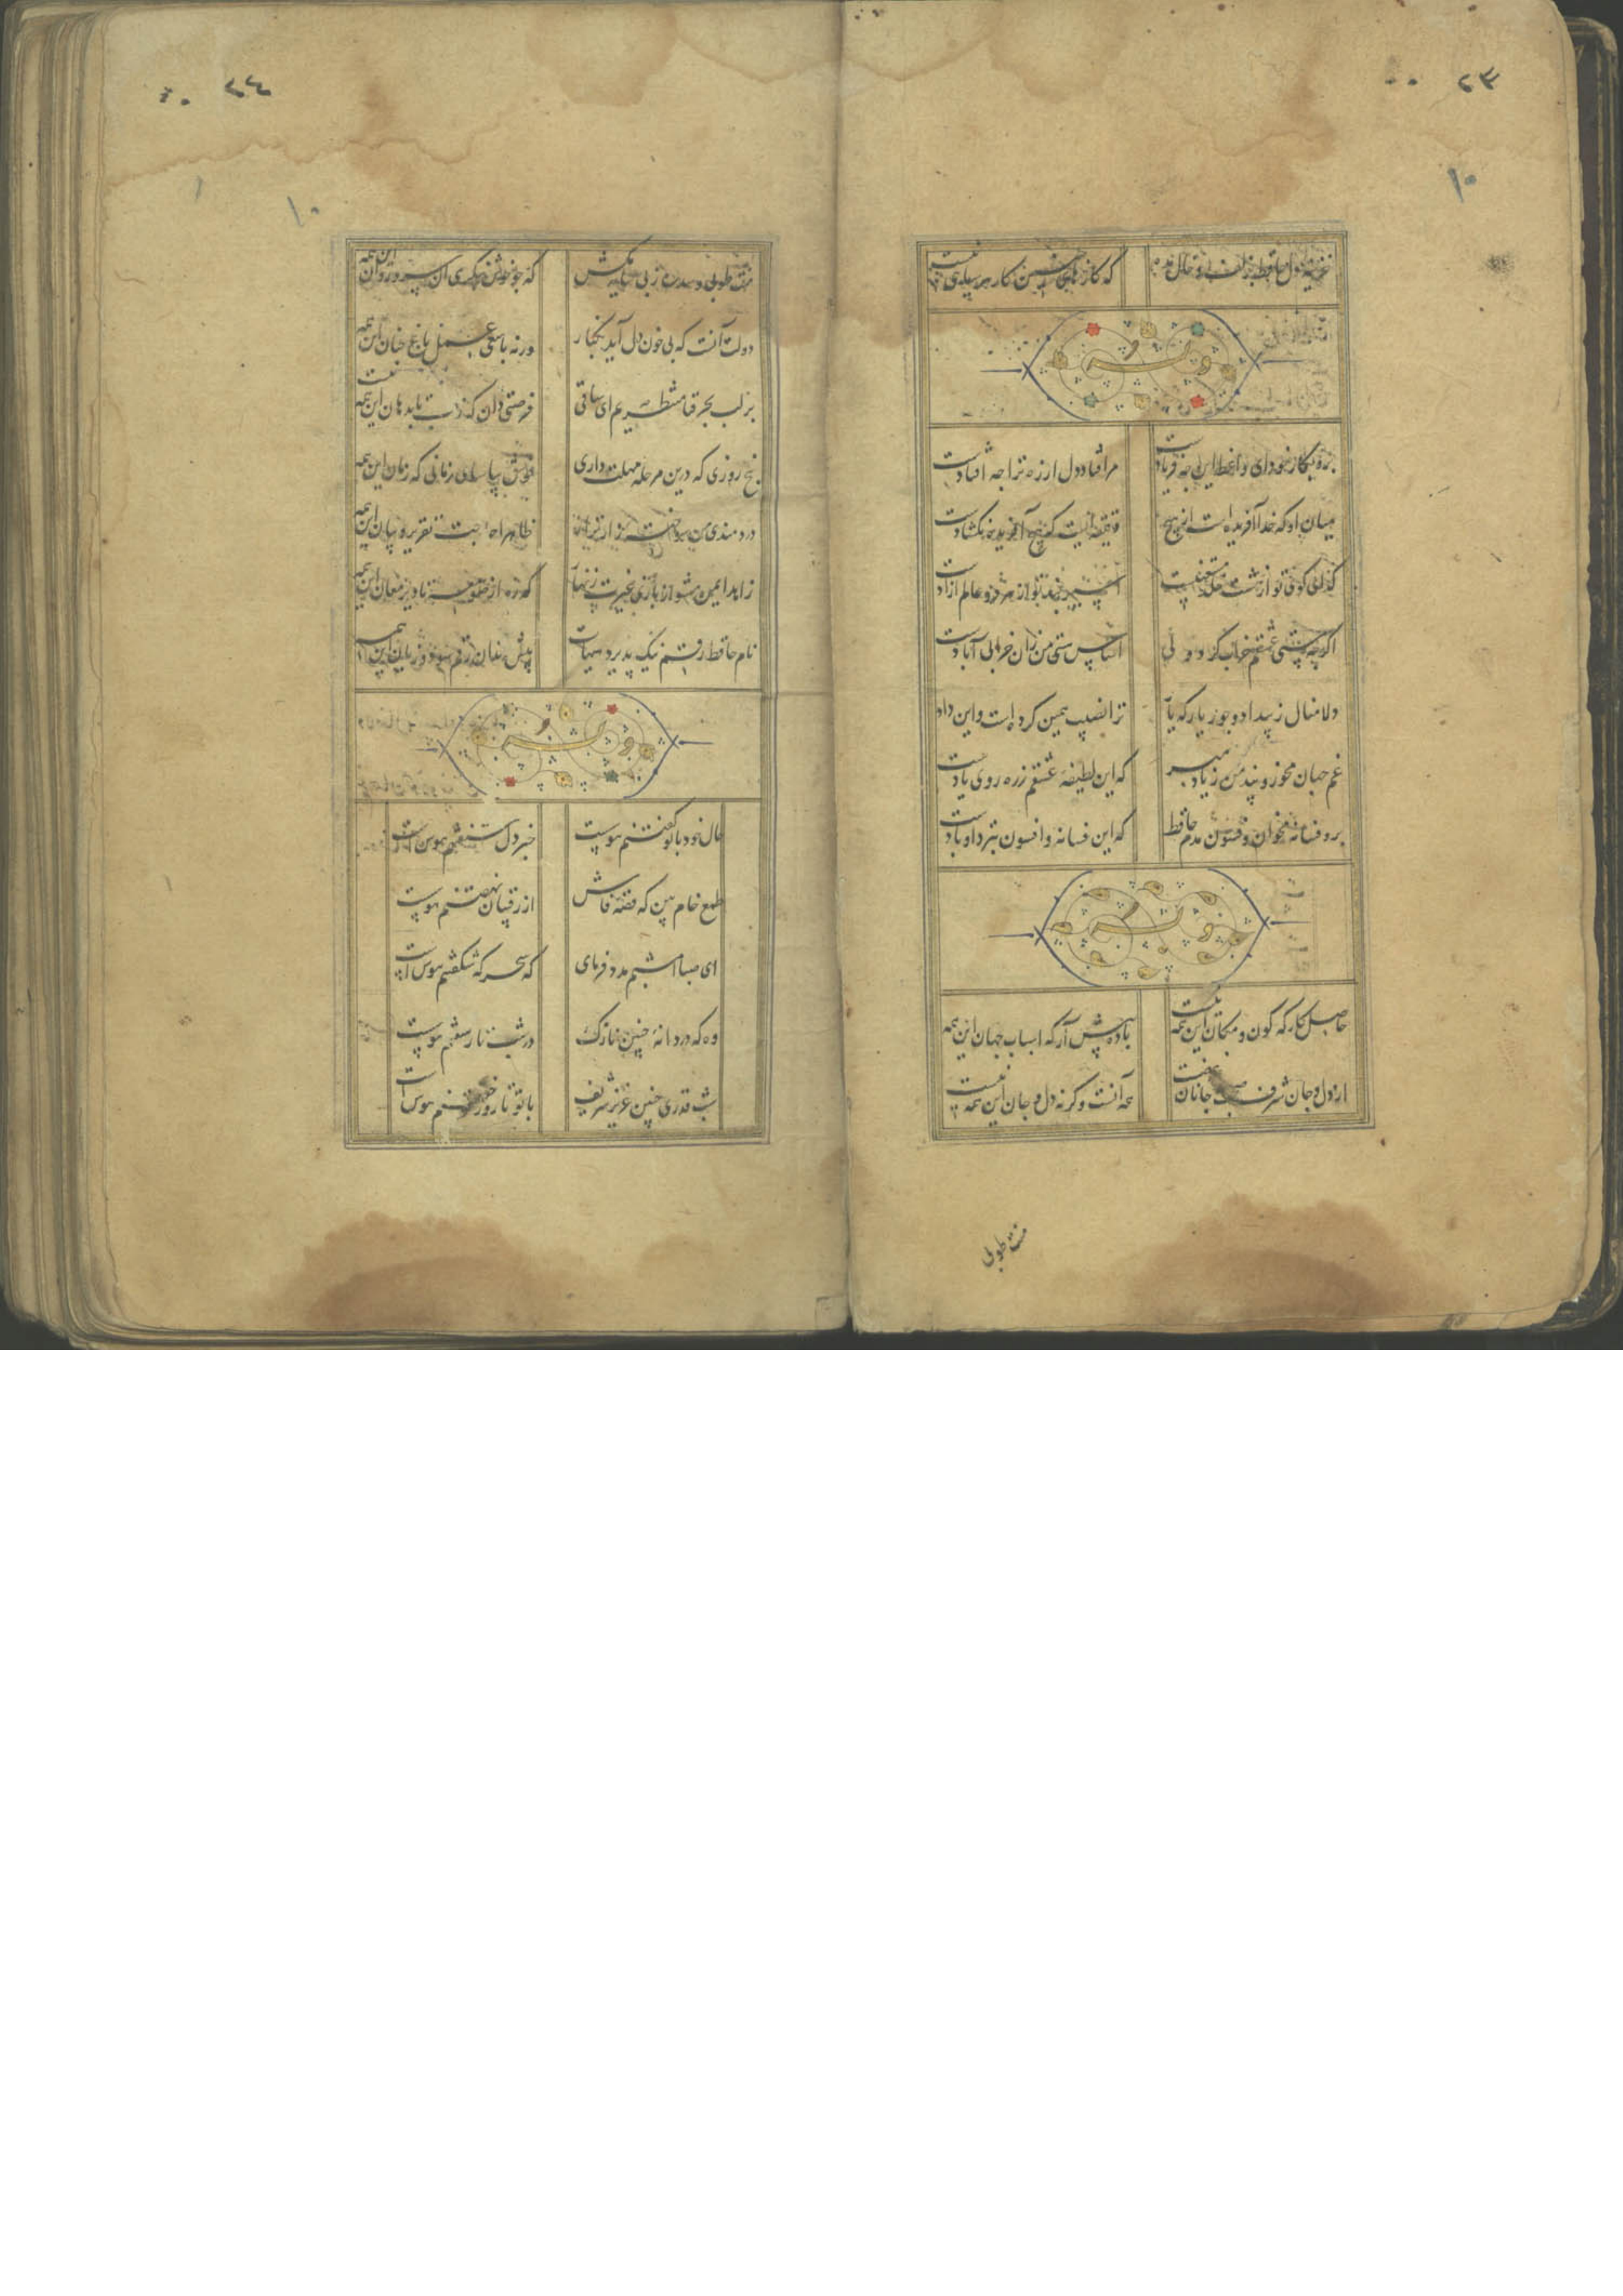 ۲۳
۱۰
خزینه دل حافظ بزلف و خال مده که کارهای چنین کار هر سیاهی نیست
وله
برو بکار خود ای واعظ این چه فریادست مرا فتاد دل از ره ترا چه افتادست
میان او که خدا آفریده است از هیچ دقیقه ایست که هیچ آفریده نگشادست
گدای کوی تو از هشت خلد مستغنیست اسیر بند تو از هر دو عالم آزادست
اگرچه مستی عشقم خراب کرد ولی اساس هستی من زان خرابی آبادست
دلا منال ز بیداد و جور یار که یار ترا نصیب همین کرده است و این دادست
غم جهان مخور و پند من مبر از یاد که این لطیفه عشقم ز ره روی یادست
برو فسانه مخوان و فسون مدم حافظ که این فسانه و افسون بتر دادست
وله
حاصل کارگه کون و مکان این همه نیست باده پیش آر که اسباب جهان این همه نیست
از دل و جان شرف صحبت جانان غرضست همه آنست وگرنه دل و جان این همه نیست
منت طوبی
۲۴
۱۰
منت طوبی و سدره ز پی سایه مکش که چو خوش بنگری ای سرو روان این همه نیست
دولت آنست که بی خون دل آید بکنار ورنه با سعی عمل باغ جنان این همه نیست
بر لب بحر فنا منتظریم ای ساقی فرصتی دان که ز لب تا بدهان این همه نیست
پنج روزی که درین مرحله مهلت داری خوش بیاسای زمانی که زمان این همه نیست
دردمندی من ظاهرا حاجت تقریر و بیان این همه نیست
زاهد ایمن مشو از بازی غیرت زنهار که ره از صومعه تا دیر مغان این همه نیست
نام حافظ رقم نیک پذیرد هیهات پیش رندان رقم سود و زیان این همه نیست
وله
حال خود با تو گفتنم هوسست خبر دل شنفتنم هوس است
طمع خام بین که قصه فاش از رقیبان نهفتنم هوسست
ای صبا امشبم مدد فرمای که سحرگه شکفتنم هوس است
وه که دردانه چنین نازک در شب تار سفتنم هوسست
شب قدری چنین عزیز شریف با تو تا روز خفتنم هوس است